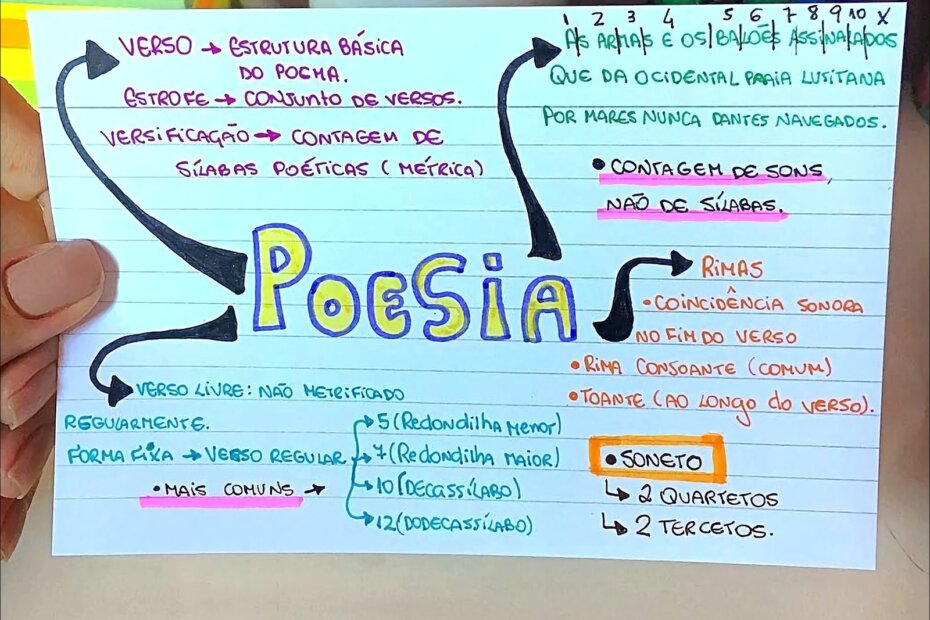 VERSO → ESTRUTURA BÁSICA
DO POEMA.
ESTROFE → CONJUNTO DE VERSOS.
VERSIFICAÇÃO → CONTAGEM DE
SÍLABAS POÉTICAS (MÉTRICA)
1 2 3 4 5 6 7 8 9 10 X
AS ARMAS E OS BALÕES ASSINALADOS
QUE DA OCIDENTAL PRAIA LUSITANA
POR MARES NUNCA DANTES NAVEGADOS.
• CONTAGEM DE SONS,
NÃO DE SÍLABAS.
POESIA
RIMAS
• COINCIDÊNCIA SONORA
NO FIM DO VERSO
• RIMA CONSOANTE (COMUM)
• TOANTE (AO LONGO do VERSO).
VERSO LIVRE: NÃO METRIFICADO
REGULARMENTE.
FORMA FIXA → VERSO REGULAR
• MAIS COMUNS →
5 (Redondilha Menor)
7 (Redondilha MAIOR)
10 (DECASSÍLABO)
12 (DODECASSÍLABO)
• SONETO
↳ 2 QUARTETOS
↳ 2 TERCETOS.